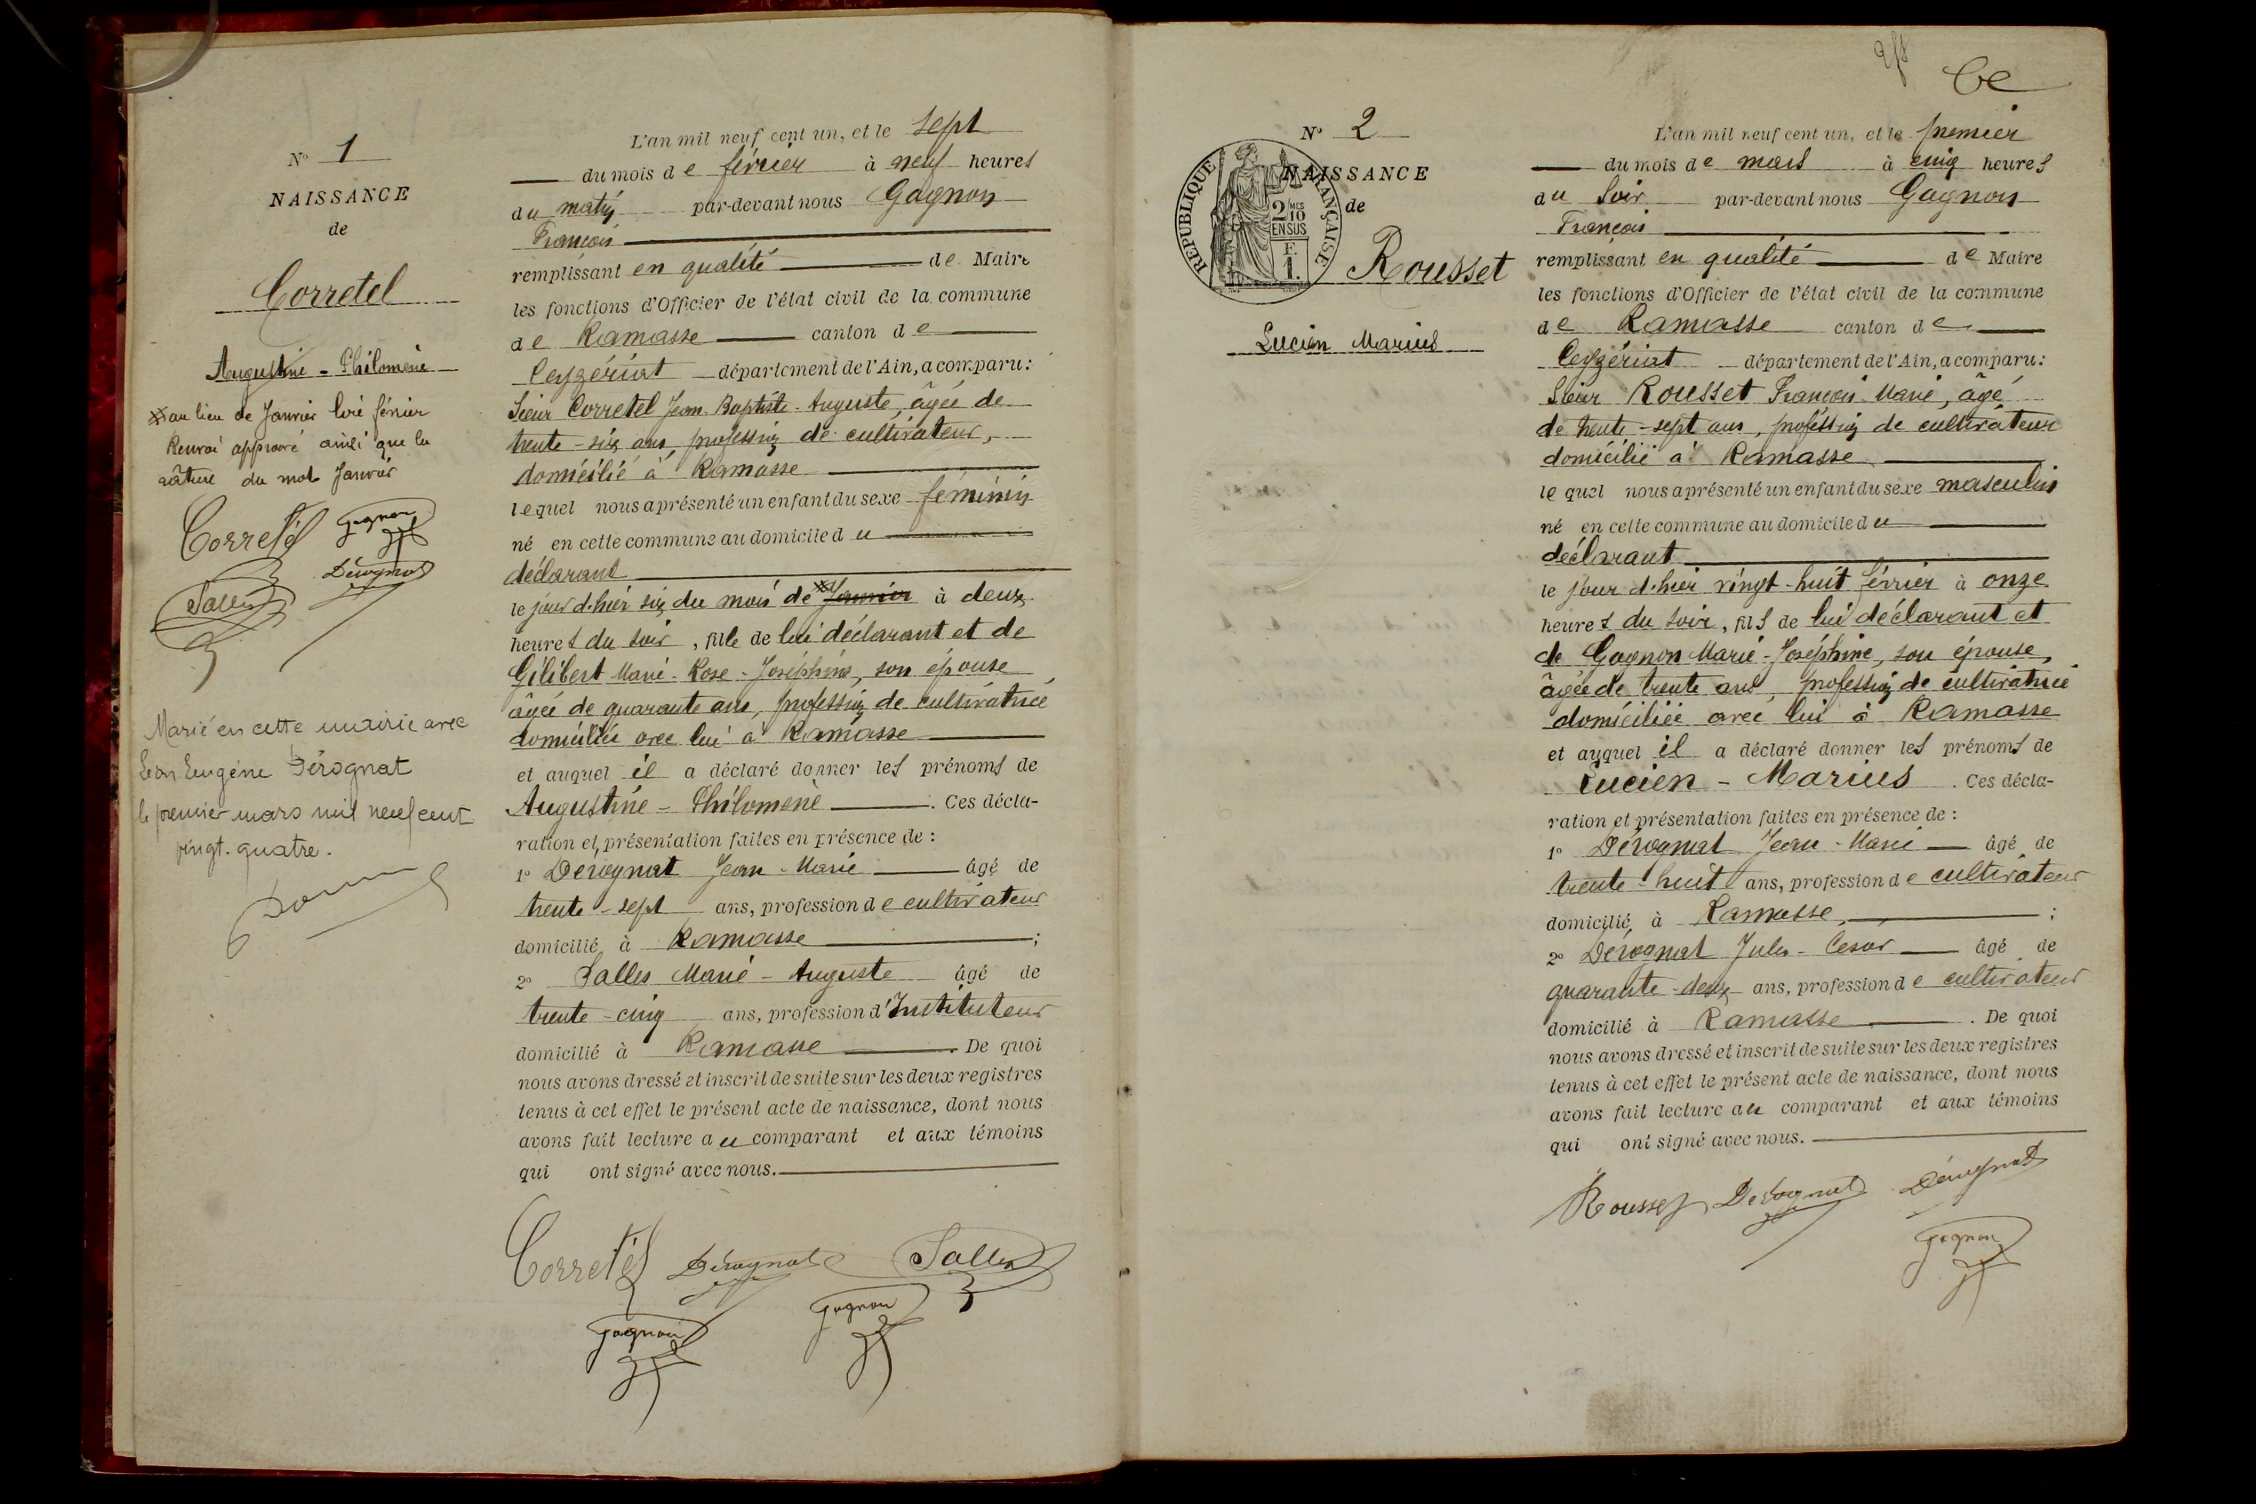 N° 1
NAISSANCE
de
Corretel
Augustine - Philomène
※ au lieu de Janvier lire février
Renvoi approuvé ainsi que la
râture du mot Janvier
Corretel Gagnon
Dérognat
Salles
Marié en cette mairie avec
Léon Eugène Dérognat
le premier mars mil neuf cent
vingt-quatre.
L'an mil neuf cent un, et le sept
du mois de février à neuf heures
du matin par-devant nous Gagnon
François
remplissant en qualité de Maire
les fonctions d'Officier de l'état civil de la commune
de Ramasse canton de
Ceyzériat département de l'Ain, a comparu:
Sieur Corretel Jean-Baptiste-Auguste, âgé de
trente-six ans, profession de cultivateur,
domicilié à Ramasse
lequel nous a présenté un enfant du sexe féminin
né en cette commune au domicile du
déclarant
le jour d'hier six du mois de ※ Janvier à deux
heures du soir, fille de lui déclarant et de
Gélibert Marie-Rose-Joséphine, son épouse
âgée de quarante ans, profession de cultivatrice
domiciliée avec lui à Ramasse
et auquel il a déclaré donner les prénoms de
Augustine - Philomène. Ces décla-
ration et présentation faites en présence de :
1° Dérognat Jean-Marie âgé de
trente-sept ans, profession de cultivateur
domicilié à Ramasse ;
2° Salles Marie-Auguste âgé de
trente-cinq ans, profession d'Instituteur
domicilié à Ramasse. De quoi
nous avons dressé et inscrit de suite sur les deux registres
tenus à cet effet le présent acte de naissance, dont nous
avons fait lecture au comparant et aux témoins
qui ont signé avec nous.
Corretel Dérognat Salles
Gagnon Gagnon
N° 2
NAISSANCE
de
RÉPUBLIQUE FRANÇAISE
2/10 MES
EN SUS
F.
1.
Rousset
Lucien Marius
L'an mil neuf cent un, et le premier
du mois de mars à cinq heures
du soir par-devant nous Gagnon
François
remplissant en qualité de Maire
les fonctions d'Officier de l'état civil de la commune
de Ramasse canton de
Ceyzériat département de l'Ain, a comparu:
Sieur Rousset François-Marie, âgé
de trente-sept ans, profession de cultivateur
domicilié à Ramasse
lequel nous a présenté un enfant du sexe masculin
né en cette commune au domicile du
déclarant
le jour d'hier vingt-huit février à onze
heures du soir, fils de lui déclarant et
de Gagnon Marie-Joséphine, son épouse,
âgée de trente ans, profession de cultivatrice
domiciliée avec lui à Ramasse
et auquel il a déclaré donner les prénoms de
Lucien - Marius. Ces décla-
ration et présentation faites en présence de :
1° Dérognat Jean-Marie âgé de
trente-huit ans, profession de cultivateur
domicilié à Ramasse ;
2° Dérognat Jules-César âgé de
quarante-deux ans, profession de cultivateur
domicilié à Ramasse. De quoi
nous avons dressé et inscrit de suite sur les deux registres
tenus à cet effet le présent acte de naissance, dont nous
avons fait lecture au comparant et aux témoins
qui ont signé avec nous.
Rousset Dérognat Dérognat
Gagnon